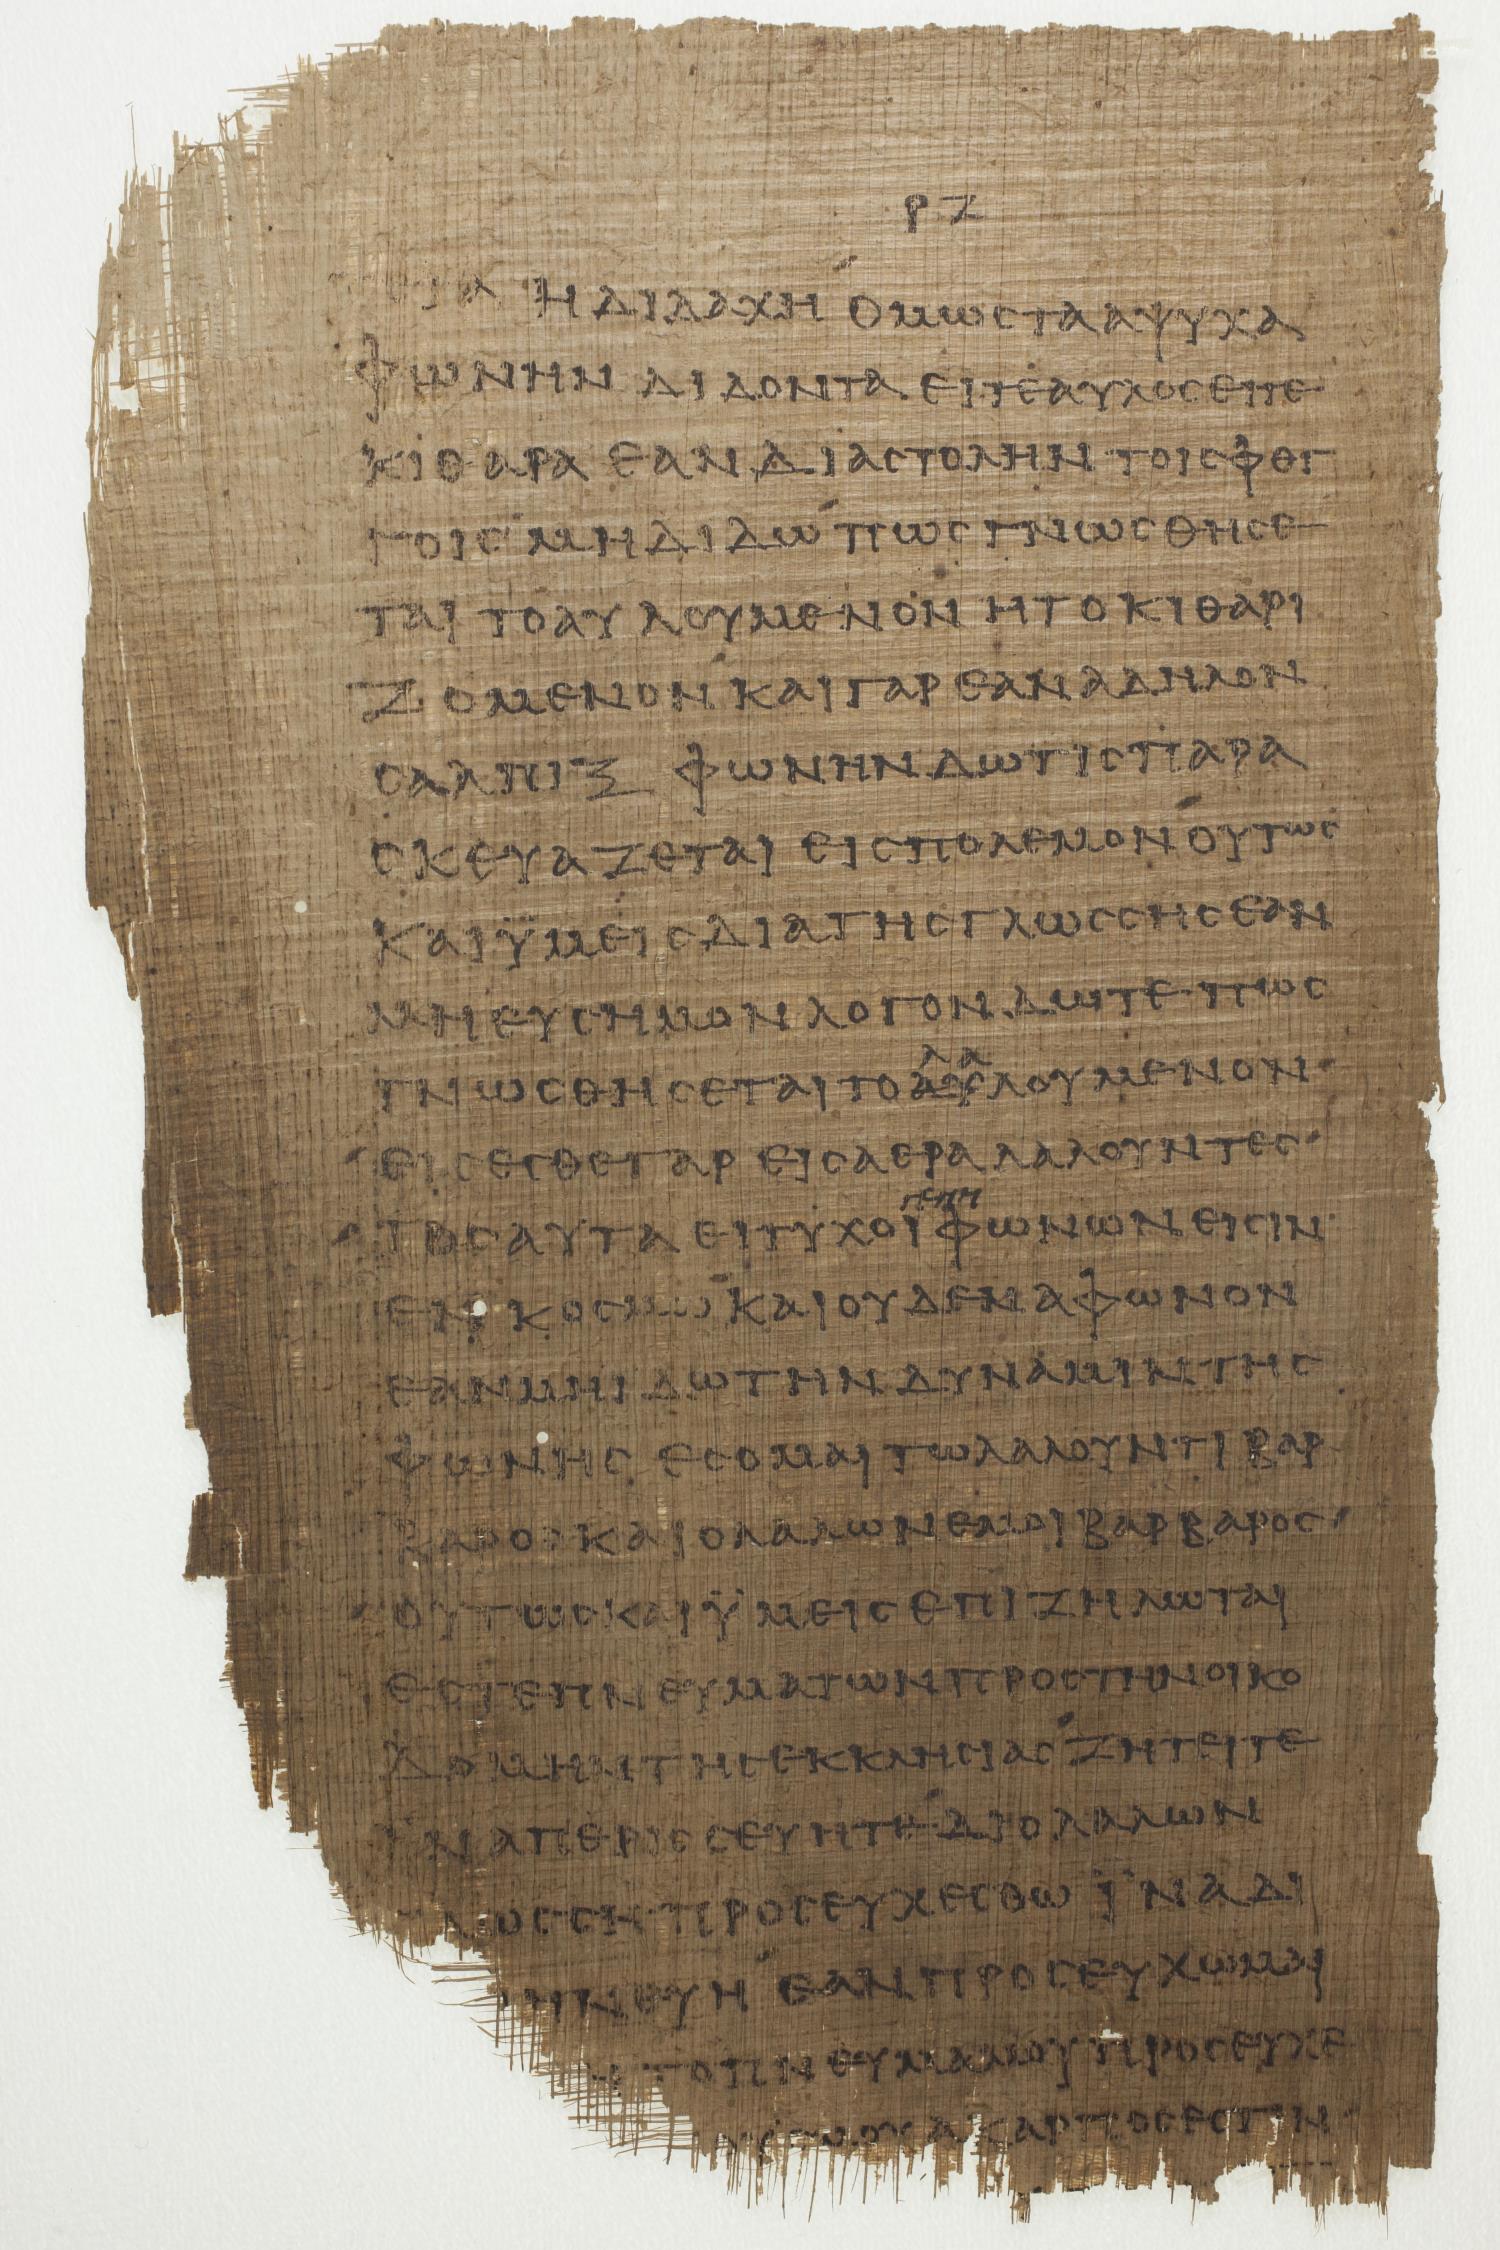 ΡΖ
Η ΔΙΔΑΧΗ ΟΜΩΣ ΤΑ ΑΨΥΧΑ
ΦΩΝΗΝ ΔΙΔΟΝΤΑ ΕΙΤΕ ΑΥΛΟΣ ΕΙΤΕ
ΚΙΘΑΡΑ ΕΑΝ ΔΙΑΣΤΟΛΗΝ ΤΟΙΣ ΦΘΓ
ΓΟΙΣ ΜΗ ΔΙΔΩ ΠΩΣ ΓΝΩΣΘΗΣΕ
ΤΑΙ ΤΟ ΑΥΛΟΥΜΕΝΟΝ Η ΤΟ ΚΙΘΑΡΙ
ΖΟΜΕΝΟΝ ΚΑΙ ΓΑΡ ΕΑΝ ΑΔΗΛΟΝ
ΣΑΛΠΙΞ ΦΩΝΗΝ ΔΩ ΤΙΣ ΠΑΡΑ
ΣΚΕΥΑΖΕΤΑΙ ΕΙΣ ΠΟΛΕΜΟΝ ΟΥΤΩΣ
ΚΑΙ ΫΜΕΙΣ ΔΙΑ ΤΗΣ ΓΛΩΣΣΗΣ ΕΑΝ
ΜΗ ΕΥΣΗΜΟΝ ΛΟΓΟΝ ΔΩΤΕ ΠΩΣ
ΛΑ
ΓΝΩΣΘΗΣΕΤΑΙ ΤΟ ΑΥΛΟΥΜΕΝΟΝ
ΕΙΣΕΣΘΕ ΓΑΡ ΕΙΣ ΑΕΡΑ ΛΑΛΟΥΝΤΕΣ
ΓΕΝΗ
ΤΟΣΑΥΤΑ ΕΙ ΤΥΧΟΙ ΦΩΝΩΝ ΕΙΣΙΝ
ΕΝ ΚΟΣΜΩ ΚΑΙ ΟΥΔΕΝ ΑΦΩΝΟΝ
ΕΑΝ ΜΗ ΙΔΩ ΤΗΝ ΔΥΝΑΜΙΝ ΤΗΣ
ΦΩΝΗΣ ΕΣΟΜΑΙ ΤΩ ΛΑΛΟΥΝΤΙ ΒΑΡ
ΒΑΡΟΣ ΚΑΙ Ο ΛΑΛΩΝ ΕΜΟΙ ΒΑΡΒΑΡΟΣ
ΟΥΤΩΣ ΚΑΙ ΫΜΕΙΣ ΕΠΙ ΖΗΛΩΤΑΙ
ΕΣΤΕ ΠΝΕΥΜΑΤΩΝ ΠΡΟΣ ΤΗΝ ΟΙΚΟ
ΔΟΜΗΝ ΤΗΣ ΕΚΚΛΗΣΙΑΣ ΖΗΤΕΙΤΕ
ΪΝΑ ΠΕΡΙΣΣΕΥΗΤΕ ΔΙΟ Ο ΛΑΛΩΝ
ΛΩΣΣΗ ΠΡΟΣΕΥΧΕΣΘΩ ΪΝΑ ΔΙ
ΜΗΝΕΥΗ ΕΑΝ ΠΡΟΣΕΥΧΩΜΑΙ
ΤΟ ΠΝΕΥΜΑ ΜΟΥ ΠΡΟΣΕΥΧΕ
ΜΟΥ ΑΚΑΡΠΟΣ ΕΣΤΙΝ